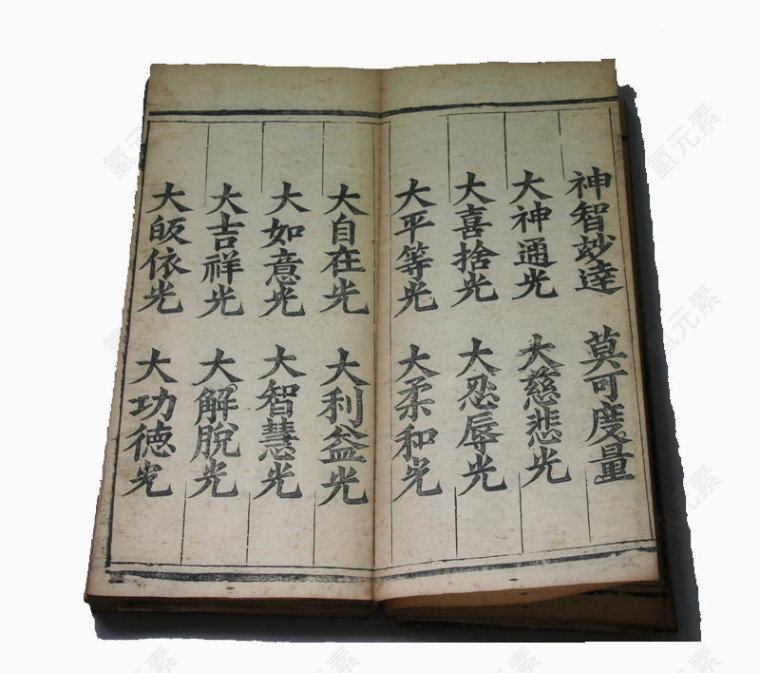 神智妙達 莫可度量
大神通光 大慈悲光
大喜捨光 大忍辱光
大平等光 大柔和光
大自在光 大利益光
大如意光 大智慧光
大吉祥光 大解脫光
大皈依光 大功德光
氢元素
氢元素
氢元素
氢元素